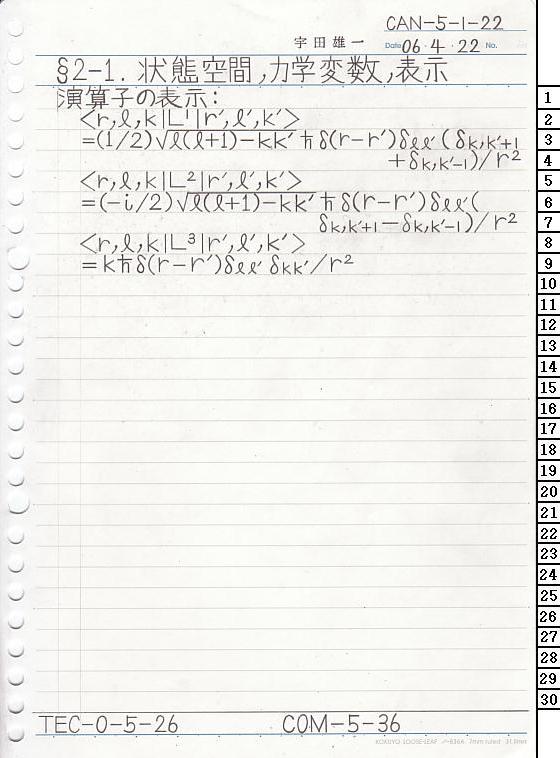 CAN-5-1-22
宇田雄一
Date 06・4・22 No.
§2-1. 状態空間,力学変数,表示
演算子の表示:
<r,ℓ,k|L¹|r′,ℓ′,k′>
=(1/2)√ℓ(ℓ+1)-kk′ ħδ(r-r′)δℓℓ′(δk,k′+1
+δk,k′-1)/r²
<r,ℓ,k|L²|r′,ℓ′,k′>
=(-i/2)√ℓ(ℓ+1)-kk′ ħδ(r-r′)δℓℓ′(
δk,k′+1-δk,k′-1)/r²
<r,ℓ,k|L³|r′,ℓ′,k′>
=kħδ(r-r′)δℓℓ′δkk′/r²
1
2
3
4
5
6
7
8
9
10
11
12
13
14
15
16
17
18
19
20
21
22
23
24
25
26
27
28
29
30
TEC-0-5-26 COM-5-36
KOKUYO LOOSE-LEAF ノ-836A 7mm ruled 31 lines